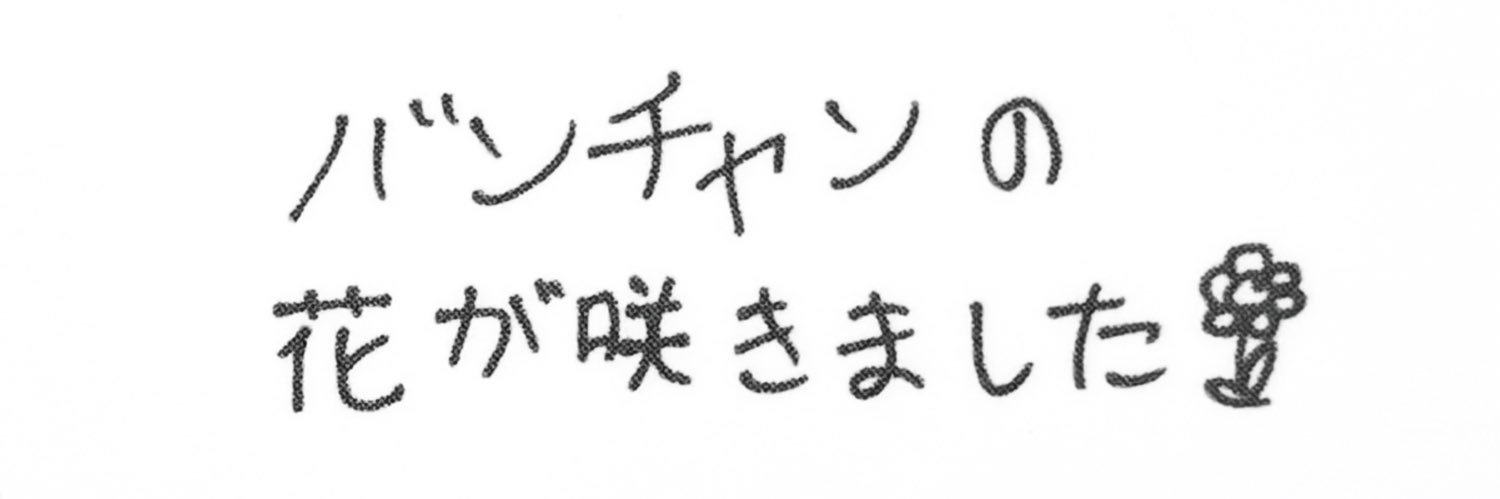 バンチャンの
花が咲きました